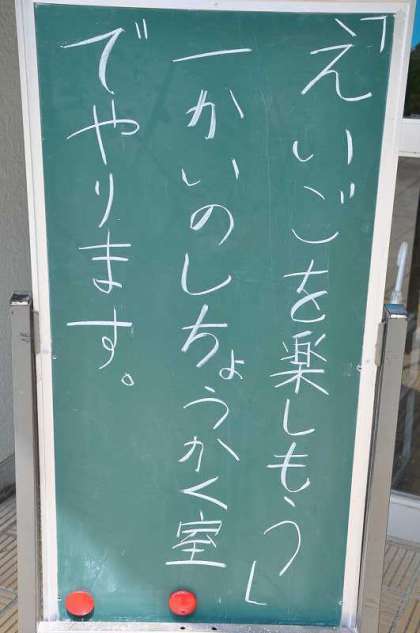 「えいごを楽しもう」
一かいのしちょうかく室
でやります。